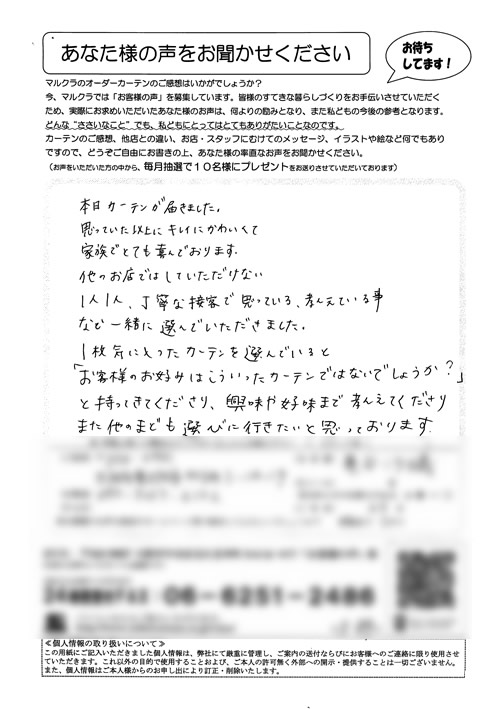 あなた様の声をお聞かせください
お待ち
してます！
マルクラのオーダーカーテンのご感想はいかがでしょうか？
今、マルクラでは「お客様の声」を募集しています。皆様のすてきな暮らしづくりをお手伝いさせていただく
ため、実際にお求めいただいたあなた様のお声は、何よりの励みとなり、また私どもの今後の参考となります。
どんな“ささいなこと”でも、私どもにとってはとてもありがたいことなのです。
カーテンのご感想、他店との違い、お店・スタッフにむけてのメッセージ、イラストや絵など何でもあり
ですので、どうぞご自由にお書きの上、あなた様の率直なお声をお聞かせください。
（お声をいただいた方の中から、毎月抽選で１０名様にプレゼントをお送りさせていただいております）
本日カーテンが届きました。
思っていた以上にキレイにかわいくて
家族でとても喜んでおります。
他のお店ではしていただけない
1人1人、丁寧な接客で思っている、考えている事
など一緒に選んでいただきました。
1枚気に入ったカーテンを選んでいると
「お客様のお好みはこういったカーテンではないでしょうか？」
と持ってきてくださり、興味や好味まで考えてくださり
また他のまども選びに行きたいと思っております
06-6251-2486
≪個人情報の取り扱いについて≫
この用紙にご記入いただきました個人情報は、弊社にて厳重に管理し、ご案内の送付ならびにお客様へのご連絡に限り使用させ
ていただきます。これ以外の目的で使用することおよび、ご本人の許可無く外部への開示・提供することは一切ございません。
また、個人情報はご本人様からのお申し出により訂正・削除いたします。